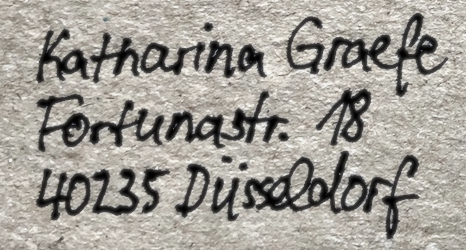 Katharina Graefe
Fortunastr. 18
40235 Düsseldorf